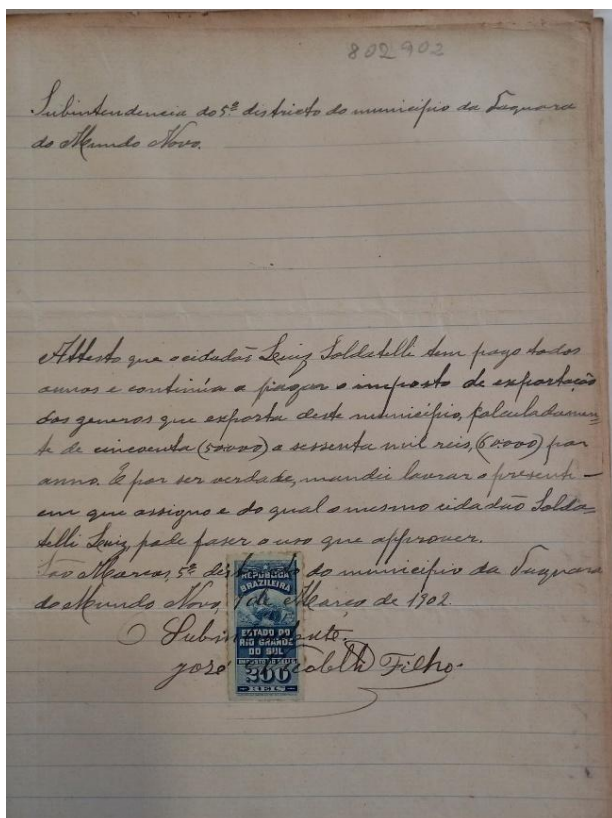 802902
Subintendencia do 5º districto do municipio da Taquara
do Mundo Novo.
Attesto que o cidadão Luiz Soldatelli tem pago todos
annos e continúa a pagar o imposto de exportação
dos generos que exporta deste municipio, calculadamen-
te de cincoenta (50.000) a sessenta mil reis, (60.000) por
anno. E por ser verdade, mandei lavrar o presente
em que assigno e do qual o mesmo cidadão Solda-
telli Luiz, pode faser o uso que approuver.
São Marcos, 5º do municipio da Taquara
do Mundo Novo, 1 de Março de 1902.
O
José Filho.
REPUBLICA
BRAZILEIRA
ESTADO DO
RIO GRANDE
DO SUL
IMPOSTO DO SELLO
200
REIS